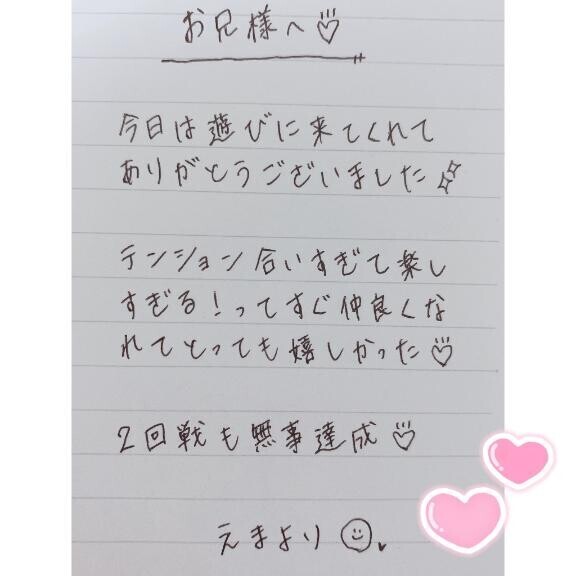 お兄様へ♡
今日は遊びに来てくれて
ありがとうございました✨
テンション合いすぎて楽し
すぎる！ってすぐ仲良くな
れてとっても嬉しかった♡
2回戦も無事達成♡
えまより☺♥